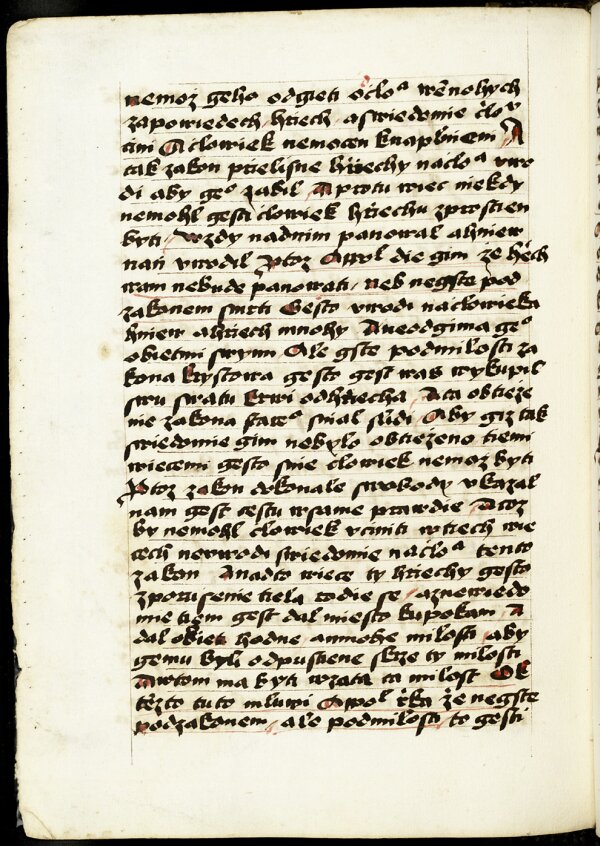 nemoz geho odgieti oclo^a wenohych
zapowiedech hriech aswiedomie clo^v
tim A clowiek nemocen knaplniem A
tak zakon prielisne hriechy naclo^a vwo
di aby ge^o zabil Aprotu wiec niekdy
nemohl gesti clowiek hriechu zprostien
byti wzdy nadnim panowal ahniew
nan vwodil Ptoz Appol die gim ze hrech
wam nebude panowati neb negste pod
zakonem smrti Gesto vwodi naclowieka
hniew ahriech mnohy Aneodgima ge^o
obietmi swym Ale gste podmilosti za
kona krystowa gesto gest was wykupil
swu swatu krwi odhriecha Ata obtieze
nie zakona stare^o snial sudi Aby giz tak
swiedomie gim nebylo obtiezeno tiemi
wiecemi gesto snie clowiek nemoz byti
Ptoz zakon dokonale swobody vkazal
nam gest cestu wsame prawdie Acoz
by nemohl clowiek vciniti wtiech wie
cech newwodi swiedomie naclo^a tento
zakon Anadto wiece ty hriechy gesto
zporusenie tiela todie se aznewiedo
mie tiem gest dal miesto kupokani A
dal obiet hodne amnohe milosti aby
gemu byli odpustiene skrze ty milosti
Awtom ma byti wzata ta milost Ok
tezto tuto mluwi Appol rka ze negste
podzakonem ale podmilosti to gesti